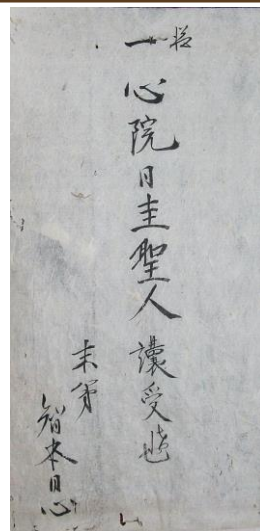 一心院日圭聖人 讓受也
末弟
智本日心